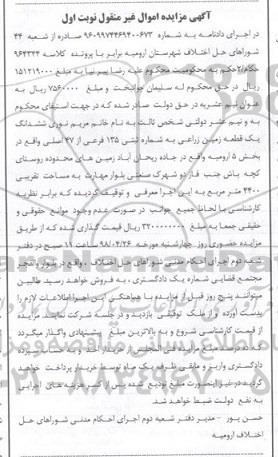 آگهی مزایده اموال غیر منقول نوبت اول
در اجرای دادنامه به شماره ۹۶۰۹۹۷۴۴۶۹۴۰۰۶۷۳ صادره از شعبه ۴۴
شوراهای حل اختلاف شهرستان ارومیه برابر با پرونده کلاسه ۹۶۴۳۴۴
حکم به محکومیت محکوم علیه رضا پیم نیا به مبلغ ۱۵۱۲۱۹۰۰۰
ریال در حق محکوم له سلیمان جوانبخت و مبلغ ۷۵۶۰۰۰۰ ریال به
عنوان نیم عشریه در حق دولت صادر شده که در جهت استیفای محکوم
به و نیم عشر دولتی شخص ثالث به نام خانم مریم نوری ششدانگ
یک قطعه زمین زراعی به شماره ثبتی ۱۳۵ فرعی از ۴۷ اصلی واقع در
بخش ۵ ارومیه واقع در جاده ریحان آباد زمین های محدوده روستای
کچه باش جنب فاز دو شهرک صنعتی بلوار مهارت به مساحت تقریبی
۴۴۰۰ متر مربع به این اجرا معرفی و توقیف گردیده که برابر نظریه
کارشناسی با لحاظ جمیع جوانب در صورت عدم وجود موانع حقوقی و
حقیقی جمعا به مبلغ ۳۲۰۰۰۰۰۰۰۰ ریال قیمت گذاری شده که از طریق
مزایده حضوری روز چهارشنبه مورخه ۹۸/۰۴/۲۶ ساعت ۱۱ صبح در دفتر
شعبه دوم اجرای احکام مدنی شوراهای حل اختلاف واقع در
مجتمع قضایی شماره یک دادگستری، به فروش خواهد رسید طالبین
میتوانند پنج روز قبل از مزایده با هماهنگی این اجرا اطلاعات لازم را
بدست آورده و از ملک توقیفی بازدید و در جلسه شرکت نمایند مزایده
از قیمت کارشناسی شروع و به بالاترین مبلغ پیشنهادی واگذار میگردد
ده درصد مبلغ مزایده فی المجلس از خریدار اخذ و به حساب سپرده
دادگستری واریز و مابقی ظرف یک ماه توسط خریدار پرداخت خواهد
گردید در غیر اینصورت مبلغ تودیع شده پس از کسر هزینه های اجرایی
به نفع دولت ضبط خواهد شد.
حسن پور - مدیر دفتر شعبه دوم اجرای احکام مدنی شوراهای حل
اختلاف ارومیه